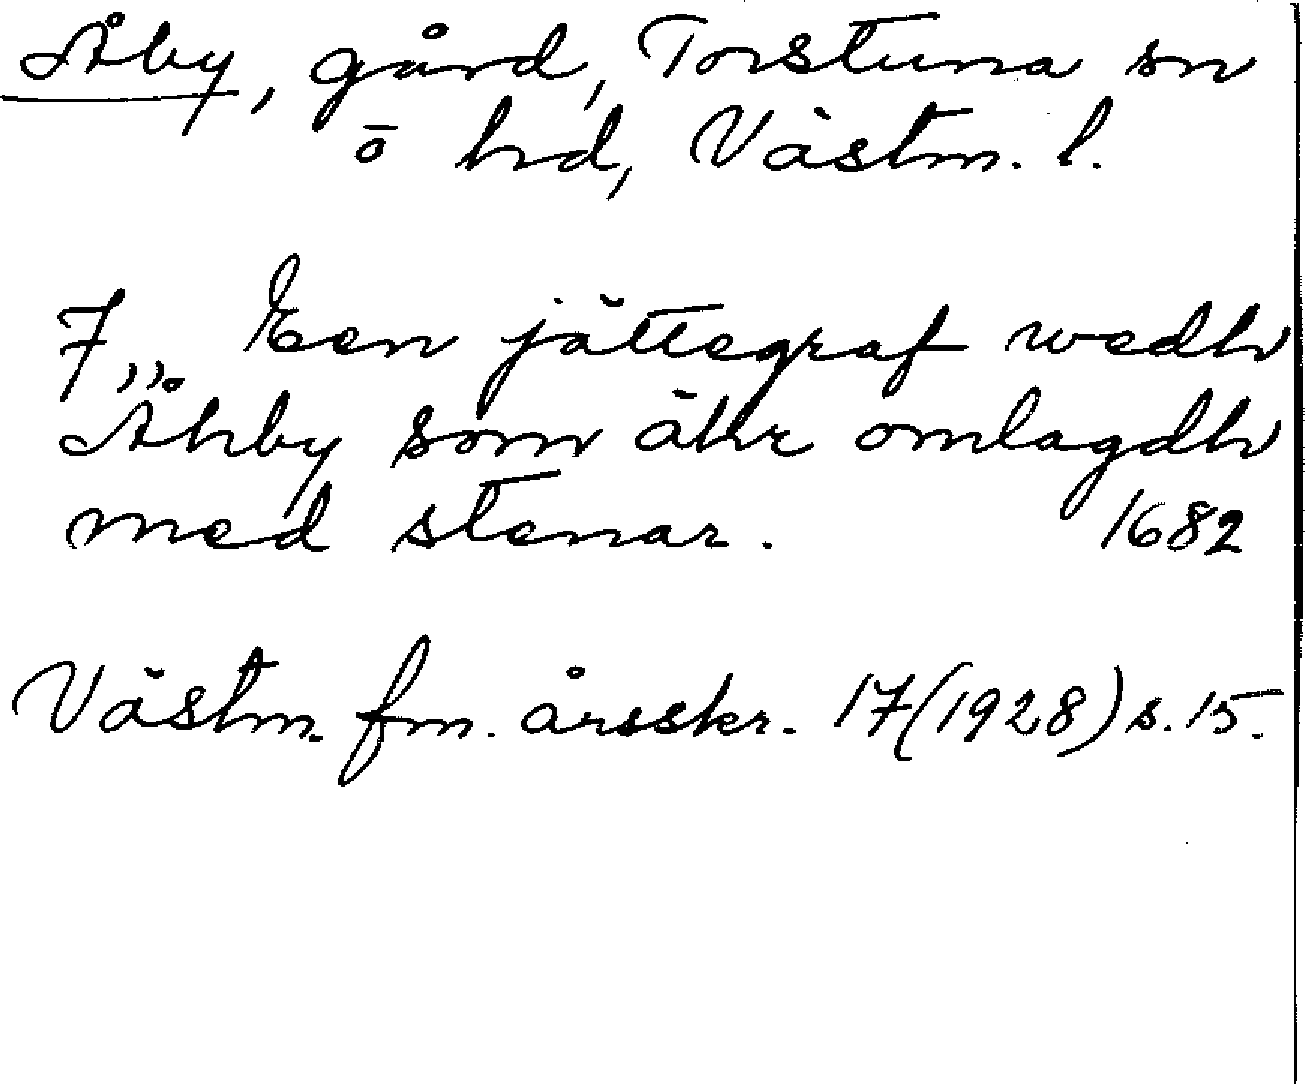 Åby, gård, Torstuna sn
ö hd, Västm. l.
7,, Een jättegraf wedh
Åhby som ähr omlagdh
med stenar. 1682
Västm. fm. årsskr. 17(1928) s. 15.